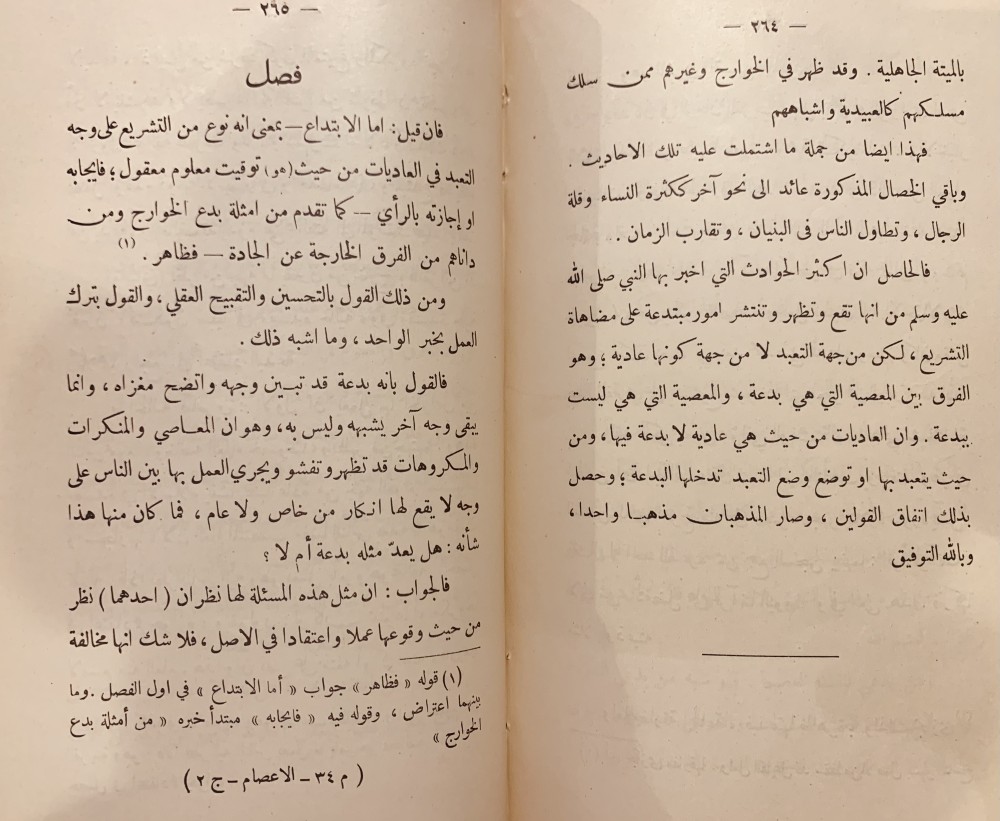 — ٢٦٤ —
بالميتة الجاهلية . وقد ظهر في الخوارج وغيرهم ممن سلك
مسلكهم كالعبيدية واشباههم
فهذا ايضا من جملة ما اشتملت عليه تلك الاحاديث .
وباقي الخصال المذكورة عائد الى نحو آخر ككثرة النساء وقلة
الرجال ، وتطاول الناس في البنيان ، وتقارب الزمان .
فالحاصل ان اكثر الحوادث التي اخبر بها النبي صلى الله
عليه وسلم من انها تقع وتظهر وتنتشر امور مبتدعة على مضاهاة
التشريع ، لكن من جهة التعبد لا من جهة كونها عادية ؛ وهو
الفرق بين المعصية التي هي بدعة ، والمعصية التي هي ليست
ببدعة . وان العاديات من حيث هي عادية لا بدعة فيها، ومن
حيث يتعبد بها او توضع وضع التعبد تدخلها البدعة ؛ وحصل
بذلك اتفاق القولين ، وصار المذهبان مذهبا واحدا،
وبالله التوفيق
— ٢٦٥ —
فصل
فان قيل : اما الابتداع — بمعنى انه نوع من التشريع على وجه
التعبد في العاديات من حيث (هو) توقيت معلوم معقول ؛ فايجابه
او إجازته بالرأي — كما تقدم من امثلة بدع الخوارج ومن
داناهم من الفرق الخارجة عن الجادة — فظاهر . (١)
ومن ذلك القول بالتحسين والتقبيح العقلي ، والقول بترك
العمل بخبر الواحد ، وما اشبه ذلك .
فالقول بانه بدعة قد تبين وجهه واتضح مغزاه ، وانما
يبقى وجه آخر يشبهه وليس به ، وهو ان المعاصي والمنكرات
والمكروهات قد تظهر وتفشو ويجري العمل بها بين الناس على
وجه لا يقع لها انكار من خاص ولا عام ، فما كان منها هذا
شأنه : هل يعدّ مثله بدعة أم لا ؟
فالجواب : ان مثل هذه المسئلة لها نظران ( احدهما ) نظر
من حيث وقوعها عملا واعتقادا في الاصل ، فلا شك انها مخالفة
(١) قوله « فظاهر » جواب « أما الابتداع » في اول الفصل . وما
بينهما اعتراض ، وقوله فيه « فايجابه » مبتدأ خبره « من أمثلة بدع
الخوارج »
( م ٣٤ – الاعصام – ج ٢ )